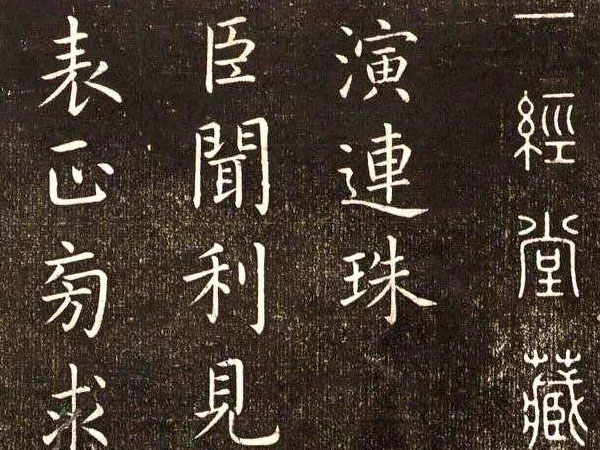 一經堂藏
演連珠
臣聞利見
表正旁求